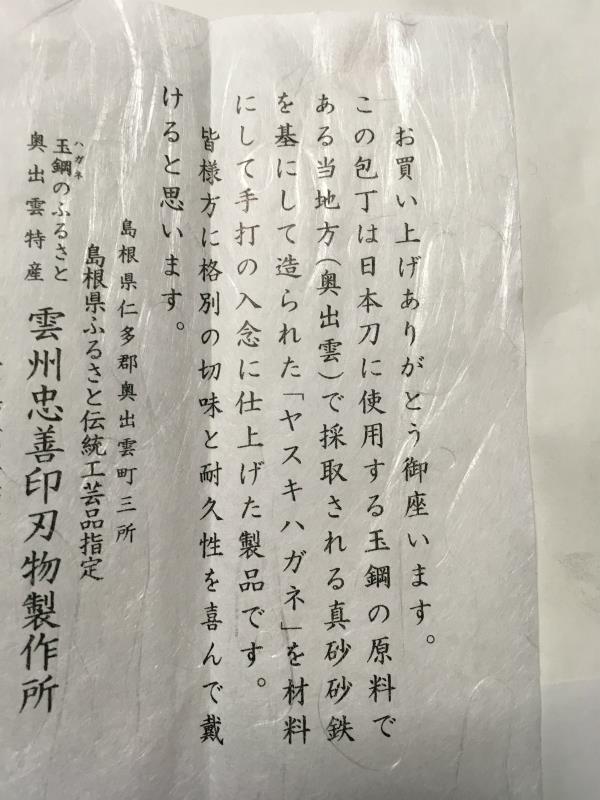 お買い上げありがとう御座います。
この包丁は日本刀に使用する玉鋼の原料で
ある当地方(奥出雲)で採取される真砂砂鉄
を基にして造られた「ヤスキハガネ」を材料
にして手打の入念に仕上げた製品です。
皆様方に格別の切味と耐久性を喜んで戴
けると思います。
島根県仁多郡奥出雲町三所
島根県ふるさと伝統工芸品指定
ハガネ
玉鋼のふるさと
奥出雲特産
雲州忠善印刃物製作所